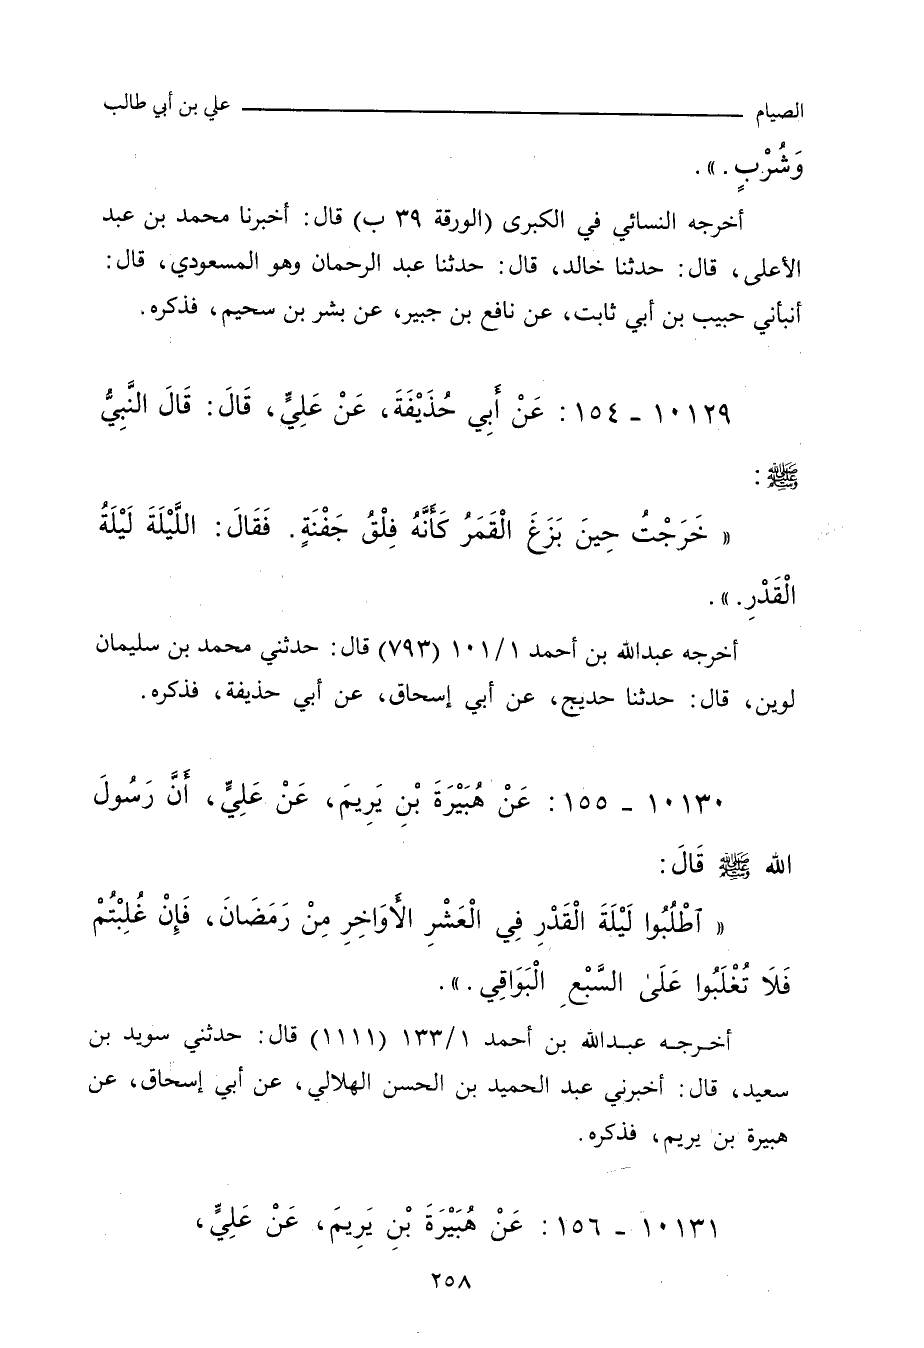 الصيام ـــــــــــ علي بن أبي طالب
وَشُرْبٍ . » .
أخرجه النسائي في الكبرى (الورقة ٣٩ ب) قال: أخبرنا محمد بن عبد
الأعلى، قال: حدثنا خالد، قال: حدثنا عبد الرحمان وهو المسعودي، قال:
أنبأني حبيب بن أبي ثابت، عن نافع بن جبير، عن بشر بن سحيم، فذكره.
١٠١٢٩ ـ ١٥٤: عَنْ أَبِي حُذَيْفَةَ، عَنْ عَلِيٍّ، قَالَ: قَالَ النَّبِيُّ
ﷺ:
« خَرَجْتُ حِينَ بَزَغَ الْقَمَرُ كَأَنَّهُ فِلْقُ جَفْنَةٍ. فَقَالَ: اللَّيْلَةَ لَيْلَةُ
الْقَدْرِ. » .
أخرجه عبدالله بن أحمد ١٠١/١ (٧٩٣) قال: حدثني محمد بن سليمان
لوين، قال: حدثنا حديج، عن أبي إسحاق، عن أبي حذيفة، فذكره.
١٠١٣٠ ـ ١٥٥: عَنْ هُبَيْرَةَ بْنِ يَرِيمَ، عَنْ عَلِيٍّ، أَنَّ رَسُولَ
الله ﷺ قَالَ:
« ٱطْلُبُوا لَيْلَةَ الْقَدْرِ فِي الْعَشْرِ الْأَوَاخِرِ مِنْ رَمَضَانَ، فَإِنْ غُلِبْتُمْ
فَلَا تُغْلَبُوا عَلَىٰ السَّبْعِ الْبَوَاقِي . » .
أخرجه عبدالله بن أحمد ١٣٣/١ (١١١١) قال: حدثني سويد بن
سعيد، قال: أخبرني عبد الحميد بن الحسن الهلالي، عن أبي إسحاق، عن
هبيرة بن يريم، فذكره.
١٠١٣١ ـ ١٥٦: عَنْ هُبَيْرَةَ بْنِ يَرِيمَ، عَنْ عَلِيٍّ،
٢٥٨